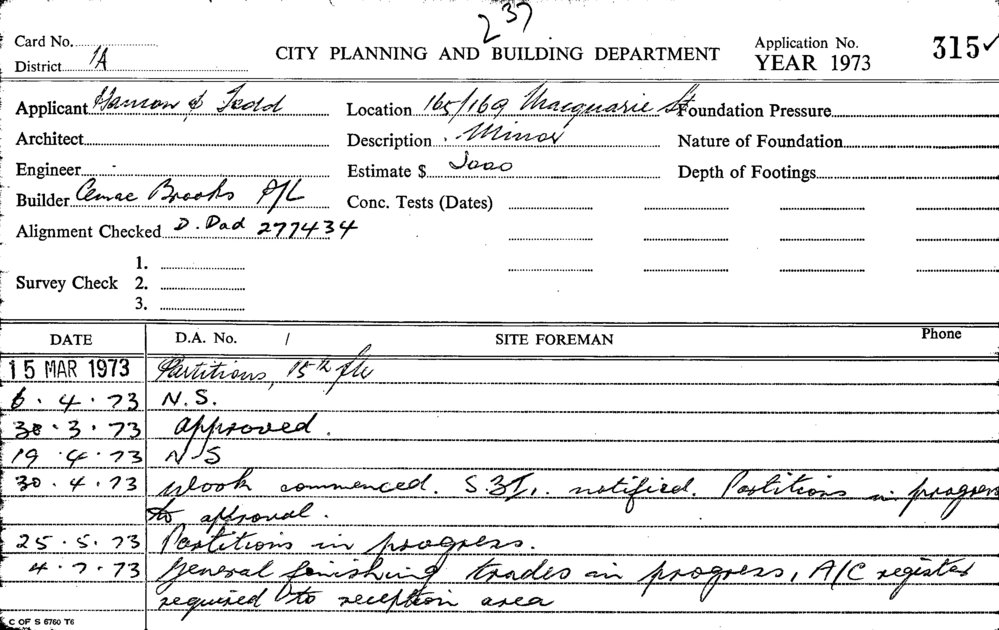 237
Card No.
CITY PLANNING AND BUILDING DEPARTMENT
Application No. 315 ✓
District 1A
YEAR 1973
Applicant Hanson & Todd Location 165/169 Macquarie St Foundation Pressure
Architect Description Minor Nature of Foundation
Engineer - Estimate $ Depth of Footings
Builder Brooks P/L Conc. Tests (Dates)
Alignment Checked D. Dad 277434
1.
Survey Check 2.
3.
DATE D.A. No. / SITE FOREMAN Phone
15 MAR 1973 Partitions, 15th flr
6.4.73 N.S.
30.3.73 approved.
19.4.73 NS
30.4.73 Work commenced. notified. Partitions in progress
to approval.
25.5.73 Partitions in progress.
4.7.73 General finishing trades in progress, A/C register
required to reception area
C OF S 6760 T6